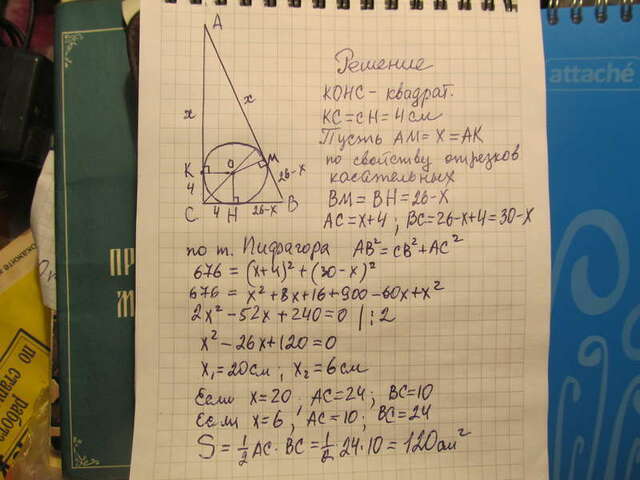 A
x
x
K
4
O
M
26-x
C
4
H
26-x
B
Решение
КОНС - квадрат.
КС = СН = 4 см
Пусть АМ = х = АК
по свойству отрезков
касательных
ВМ = ВН = 26-х
АС = х+4 ; ВС = 26-х+4 = 30-х
по т. Пифагора АВ² = СВ² + АС²
676 = (х+4)² + (30-х)²
676 = х² + 8х + 16 + 900 - 60х + х²
2х² - 52х + 240 = 0 |:2
х² - 26х + 120 = 0
х₁ = 20 см ; х₂ = 6 см
Если х = 20 , АС = 24 ; ВС = 10
Если х = 6 , АС = 10 ; ВС = 24
S = 1/2 АС · ВС = 1/2 24 · 10 = 120 см²
attaché
ПР
М
по стари
работо